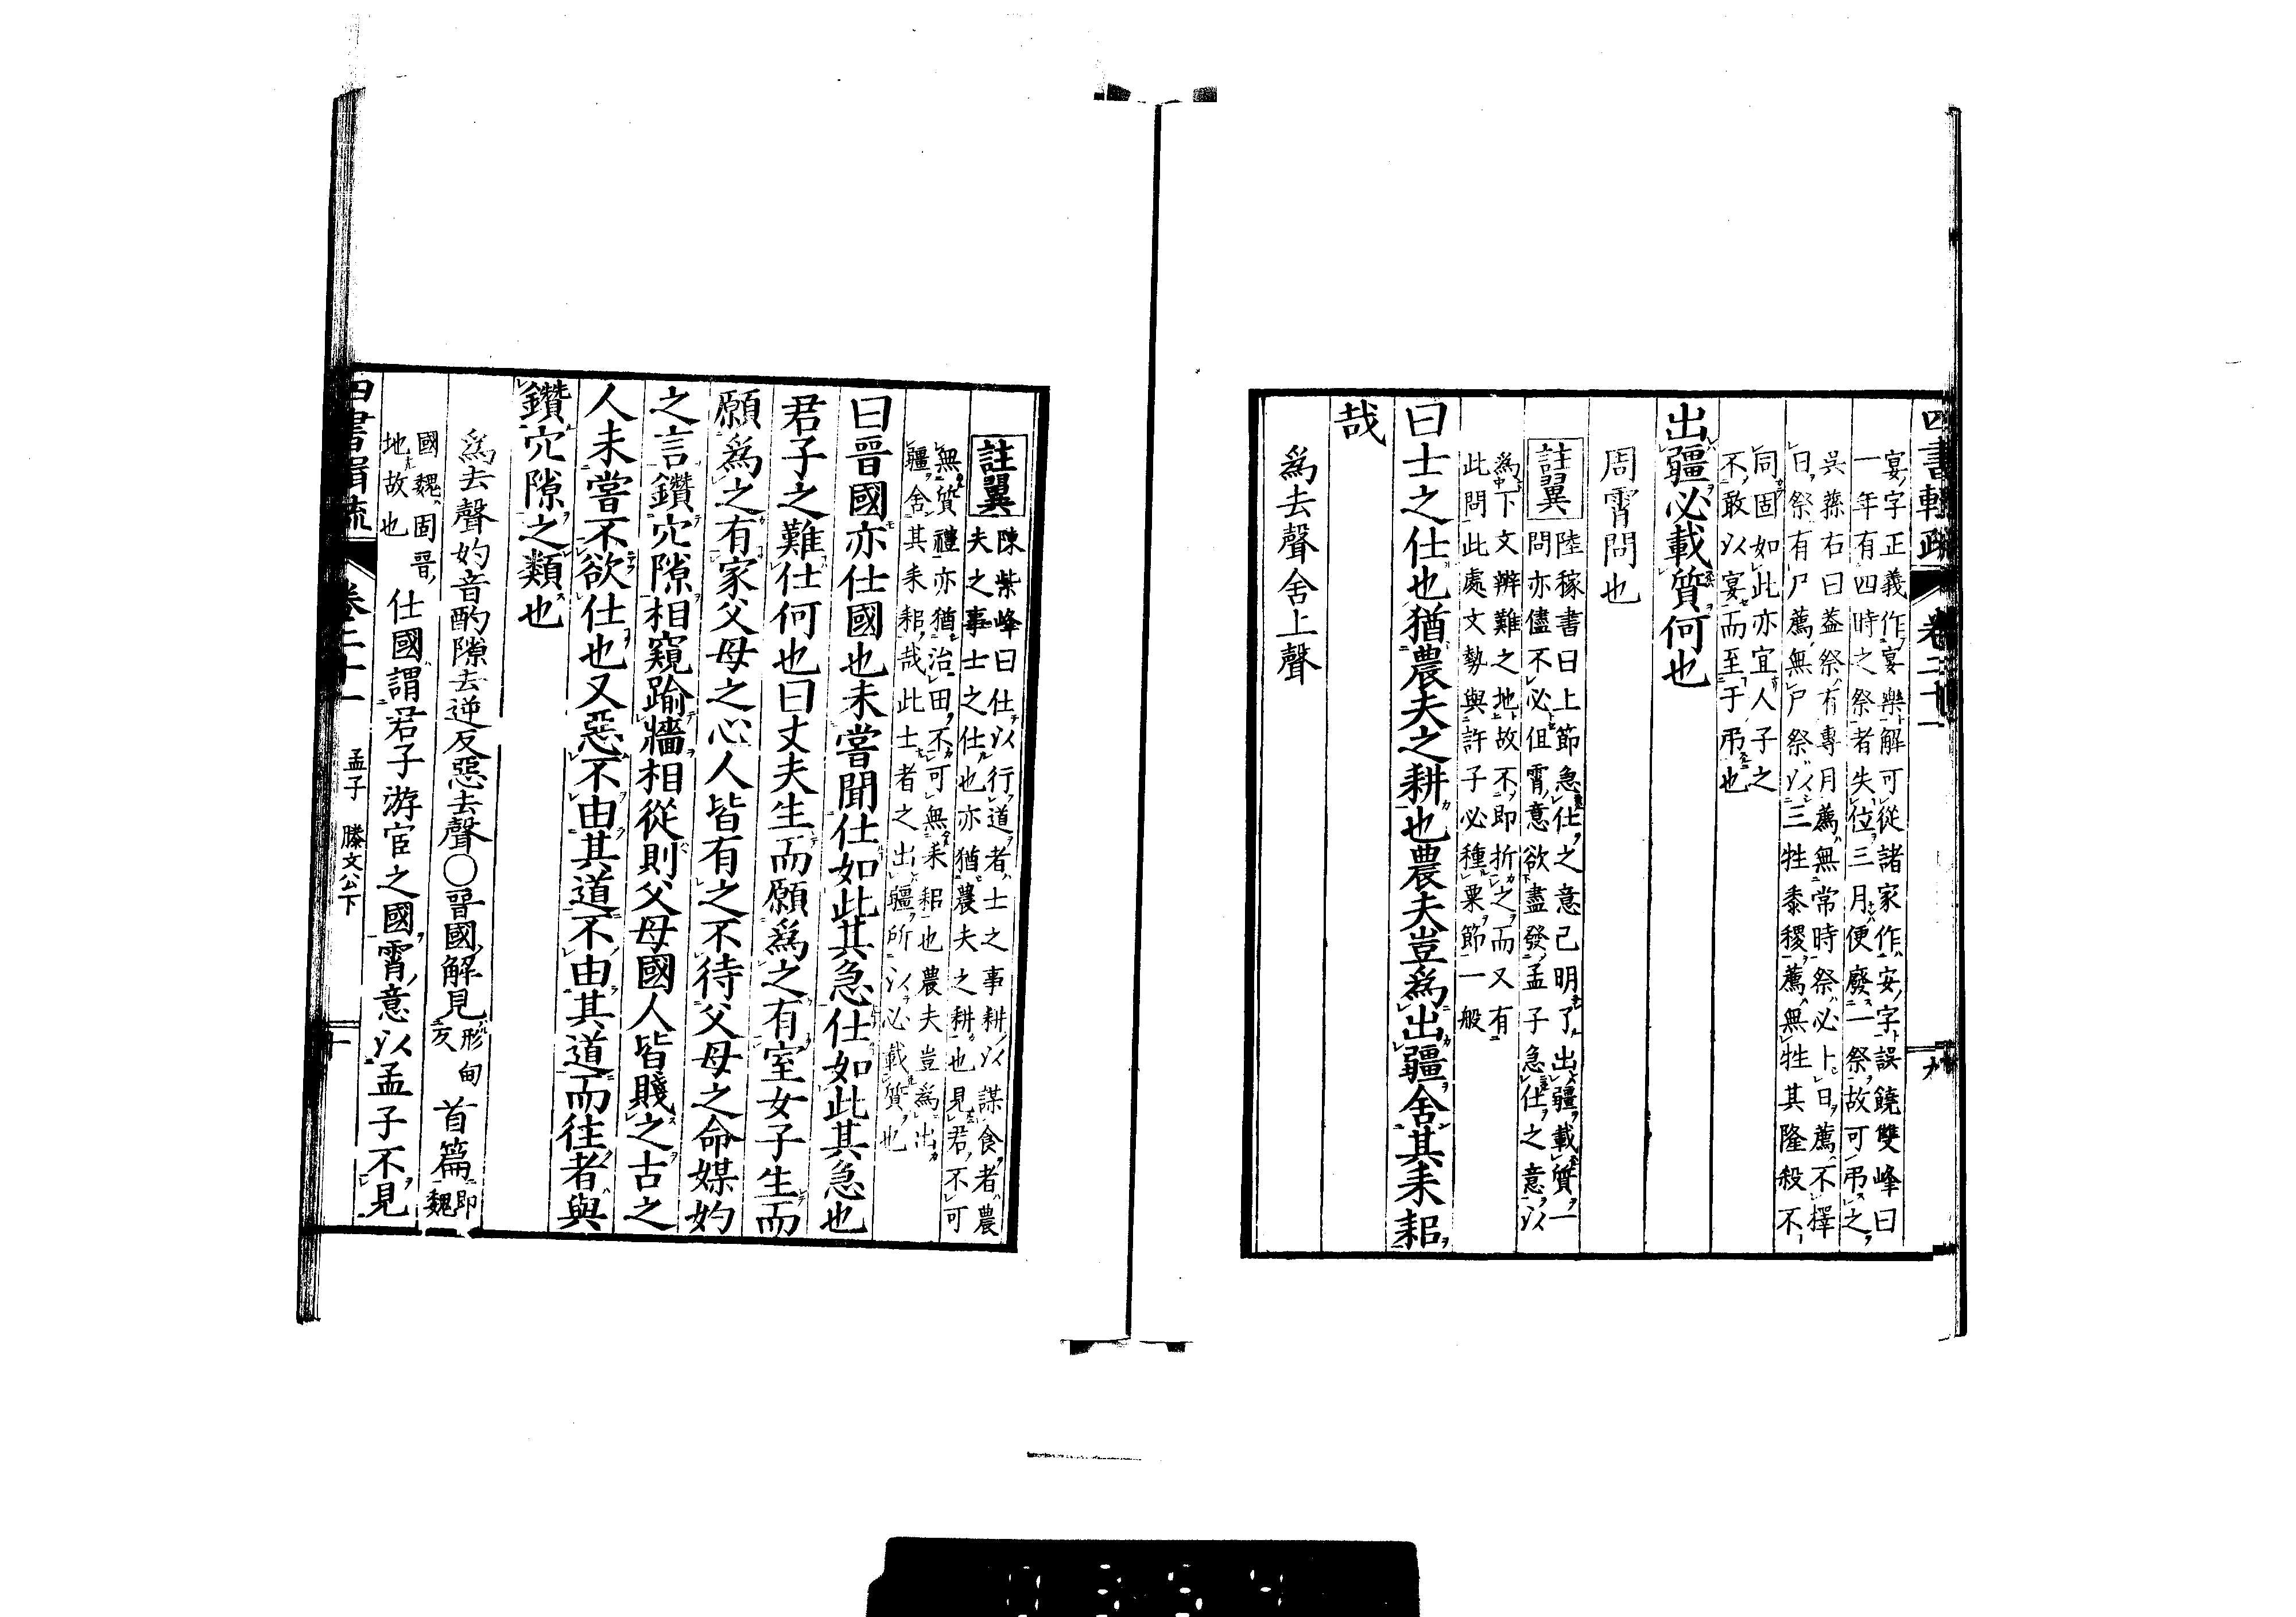 四書輯疏 卷二十一 九
宴字正義作宴樂解可從諸家作安字誤饒雙峰曰
一年有四時之祭者失位三月便廢一祭故可弔之
吳蓀右曰蓋祭有專月薦無常時祭必卜日薦不擇
日祭有尸薦無尸祭以三牲黍稷薦無牲其隆殺不
同固如此亦宜人子之
不敢以宴而至于弔也
出疆必載質何也
周霄問也
註翼
陸稼書曰上節急仕之意已明了出疆載質一
問亦儘不必但霄意欲盡發孟子急仕之意以
為下文辨難之地故不即折之而又有
此問此處文勢與許子必種粟節一般
曰士之仕也猶農夫之耕也農夫豈爲出疆舍其耒耜
哉
爲去聲舍上聲
註翼
陳紫峰曰仕以行道者士之事耕以謀食者農
夫之事士之仕也亦猶農夫之耕也見君不可
無質禮亦猶治田不可無耒耜也農夫豈爲出
疆舍其耒耜哉此士者之出疆所以必載質也
曰晉國亦仕國也未嘗聞仕如此其急仕如此其急也
君子之難仕何也曰丈夫生而願爲之有室女子生而
願爲之有家父母之心人皆有之不待父母之命媒妁
之言鑽穴隙相窺踰牆相從則父母國人皆賤之古之
人未嘗不欲仕也又惡不由其道不由其道而往者與
鑽穴隙之類也
爲去聲妁音酌隙去逆反惡去聲○晉國解見形甸反首篇即魏
國魏固晉地故也仕國謂君子游宦之國霄意以孟子不見
四書輯疏 卷二十一 孟子 滕文公下 十